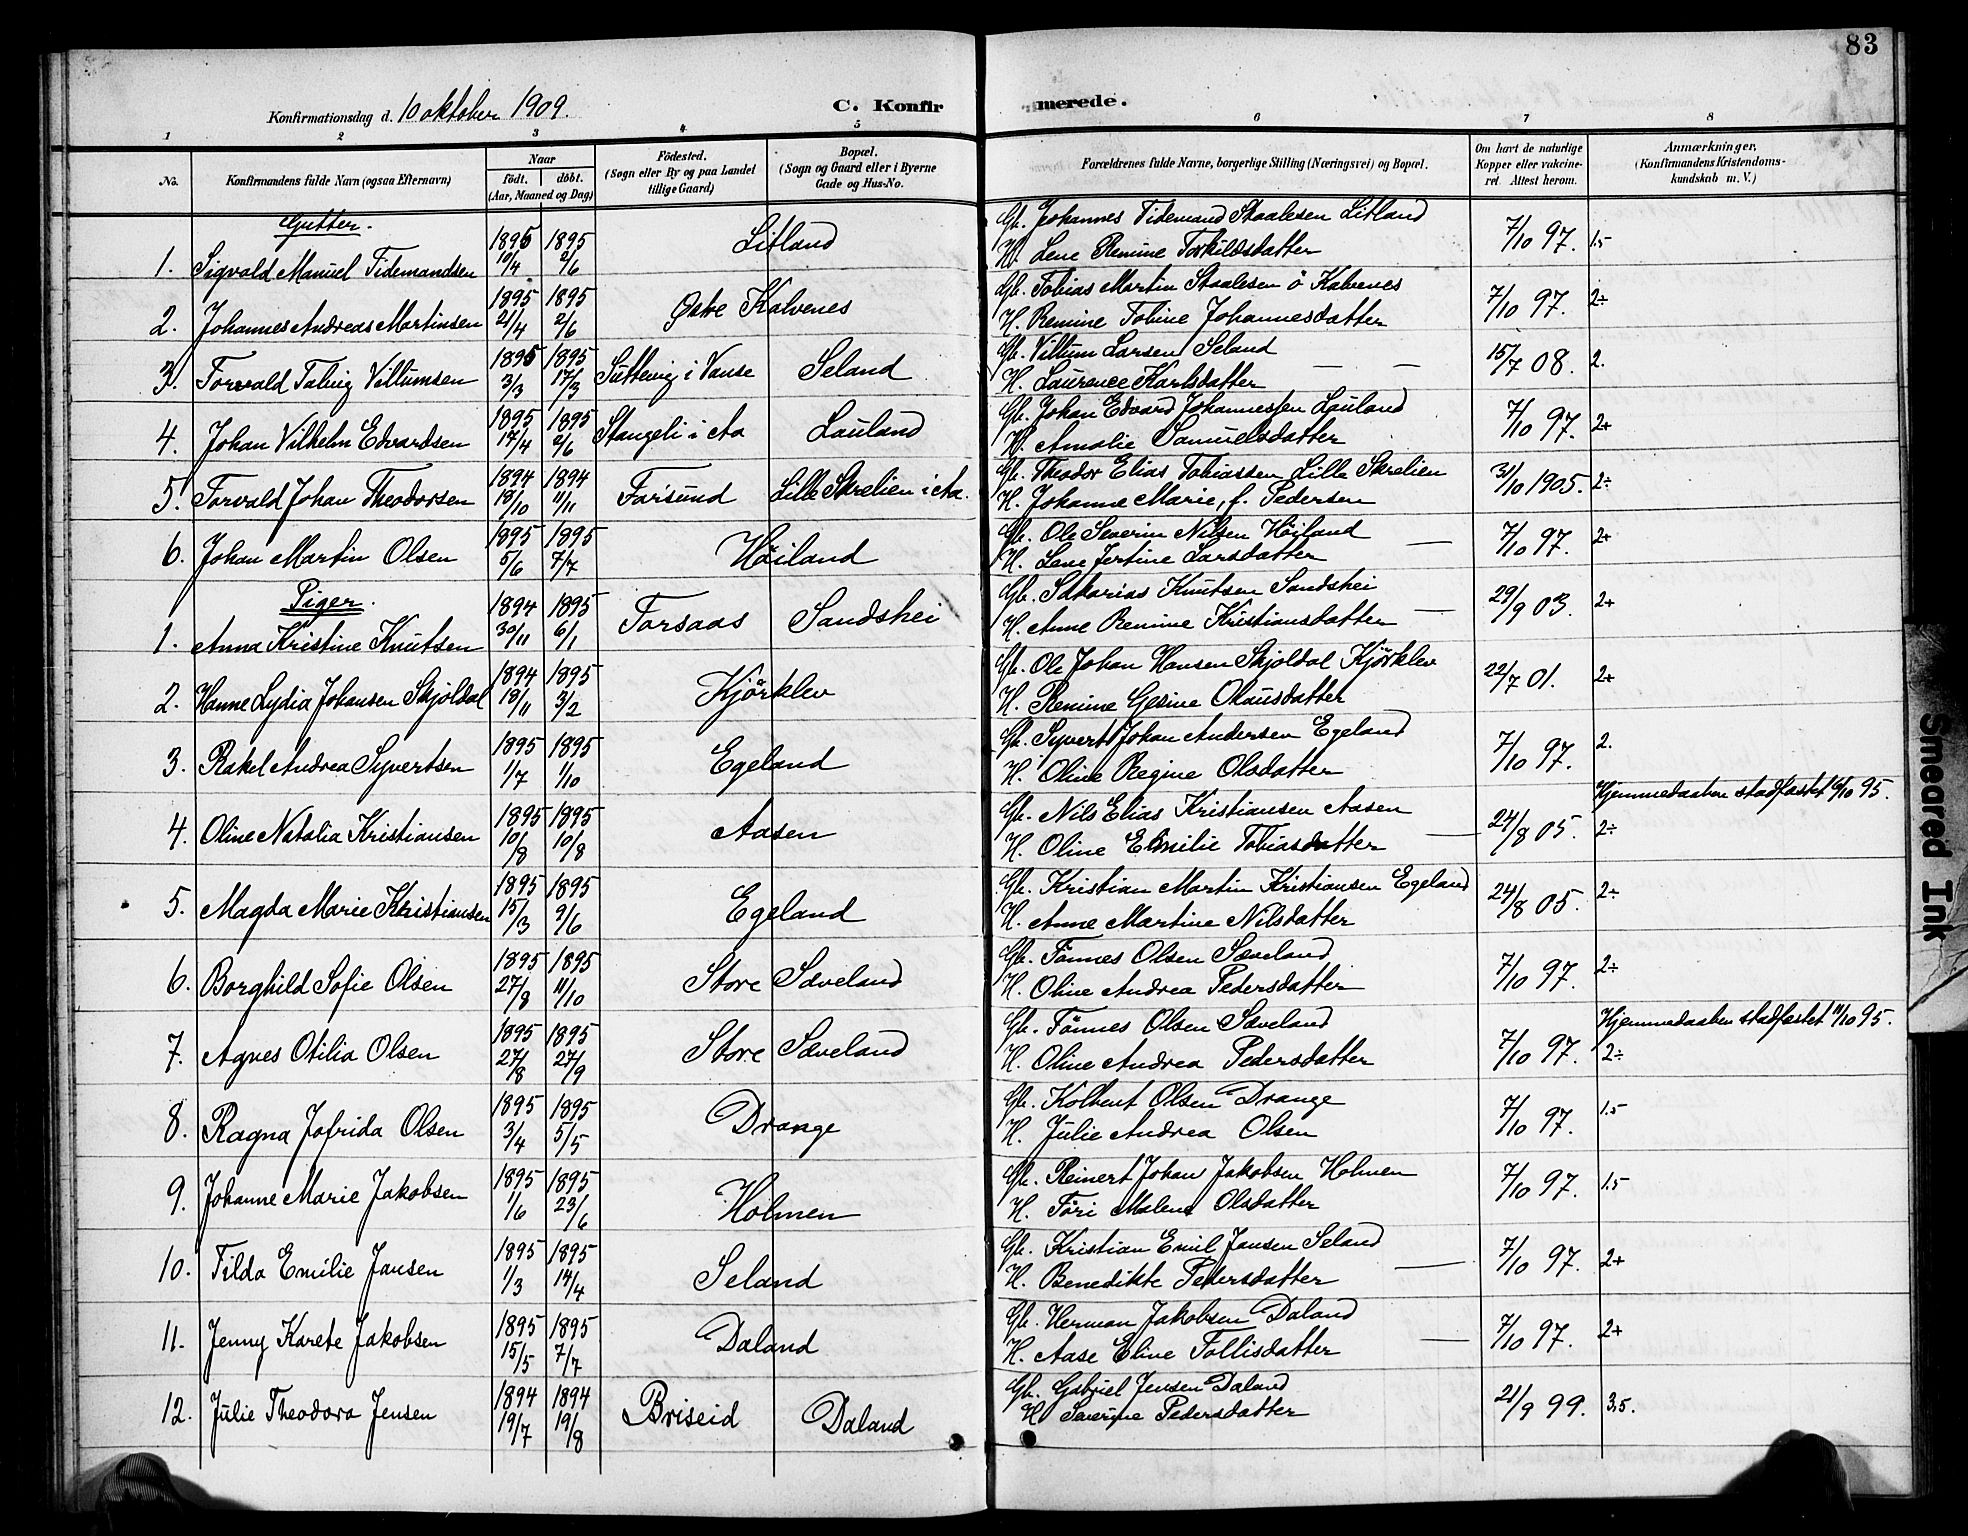 83
Konfirmationsdag d. 10 oktober 1909.
C. Konfirmerede.
1 2 3 4 5 6 7 8
No. Konfirmandens fulde Navn (ogsaa Efternavn) Naar födt. döbt. (Aar, Maaned og Dag) Födested. (Sogn eller By og paa Landet tillige Gaard) Bopæl. (Sogn og Gaard eller i Byerne Gade og Hus-No. Forældrenes fulde Navne, borgerlige Stilling (Næringsvei) og Bopæl. Om havt de naturlige Kopper eller vakcineret. Attest herom. Anmærkninger. (Konfirmandens Kristendomskundskab m. V.)
Gutter.
1. Sigvald Manuel Tidemandsen 1895 10/4 1895 2/6 Litland Gb. Johannes Tidemand Staalesen Litland 7/10 97. 1.5
H. Lene Remine Torkildsdatter
2. Johannes Andreas Martinsen 1895 21/4 1895 2/6 Østre Kalvenes Gb. Tobias Martin Staalesen ö Kalvenes 7/10 97. 2÷
H. Remine Tobine Johannesdatter
3. Torvald Villumsen 1895 3/3 1895 17/3 i Vanse Seland Gb. Villum Larsen Seland 15/7 08. 2.
H. Laurence Karlsdatter
4. Johan Vilhelm Edvardsen 1895 17/4 1895 2/6 Stangeli i Aa Lauland Gb. Johan Edvard Johannessen Lauland 7/10 97. 2+
H. Amalie Samuelsdatter
5. Torvald Johan Theodorsen 1894 18/10 1894 11/11 Farsund Lille Skrelien i Aa. Gb. Theodor Elias Tobiassen Lille Skrelien 31/10 1905. 2÷
H. Johanne Marie, f. Pedersen
6. Johan Martin Olsen 1895 5/6 1895 7/7 Höiland Gb. Ole Severin Nilsen Höiland 7/10 97. 2+
H. Lene Jertine Larsdatter
Piger.
1. Anna Kristine Knutsen 1894 30/11 1895 6/1 Forsaas Sandshei Gb. Sakarias Knutsen Sandshei 29/9 03. 2+
H. Anne Remine Kristiansdatter
2. Hanne Lydia Johansen Skjoldal 1894 18/11 1895 3/2 Kjörklev Gb. Ole Johan Hansen Skjoldal Kjörklev 22/7 01. 2+
H. Remine Gesine Olausdatter
3. Rakel Andrea Syvertsen 1895 1/7 1895 1/10 Egeland Gb. Syvert Johan Andersen Egeland 7/10 97. 2.
H. Oline Regine Olsdatter
4. Oline Natalia Kristiansen 1895 10/8 1895 10/8 Aasen Gb. Nils Elias Kristiansen Aasen 24/8 05. 2÷ Hjemmedaaben stadfæstet 6/10 95.
H. Oline Emilie Tobiasdatter
5. Magda Marie Kristiansen 1895 15/3 1895 9/6 Egeland Gb. Kristian Martin Kristiansen Egeland 24/8 05. 2÷
H. Anne Martine Nilsdatter
6. Borghild Sofie Olsen 1895 27/8 1895 11/10 Store Sæveland Gb. Tönnes Olsen Sæveland 7/10 97. 2÷
H. Oline Andrea Pedersdatter
7. Agnes Otilia Olsen 1895 27/8 1895 27/9 Store Sæveland Gb. Tönnes Olsen Sæveland 7/10 97. 2÷ Hjemmedaaben stadfæstet 11/10 95.
H. Oline Andrea Pedersdatter
8. Ragna Jofrida Olsen 1895 3/4 1895 5/5 Drange Gb. Kolbent Olsen Drange 7/10 97. 1.5
H. Julie Andrea Olsen
9. Johanne Marie Jakobsen 1895 1/6 1895 23/6 Holmen Gb. Reinert Johan Jakobsen Holmen 7/10 97. 1.5
H. Töri Malene Olsdatter
10. Tilda Emilie Jansen 1895 1/3 1895 14/4 Seland Gb. Kristian Emil Jansen Seland 7/10 97. 2+
H. Benedikte Pedersdatter
11. Jenny Karete Jakobsen 1895 15/5 1895 7/7 Daland Gb. Herman Jakobsen Daland 7/10 97. 2+
H. Aase Eline Tollisdatter
12. Julie Theodora Jensen 1894 19/7 1894 19/8 Briseid Daland Gb. Gabriel Jensen Daland 21/9 99. 3.5.
H. Severine Pedersdatter
Smeared Ink